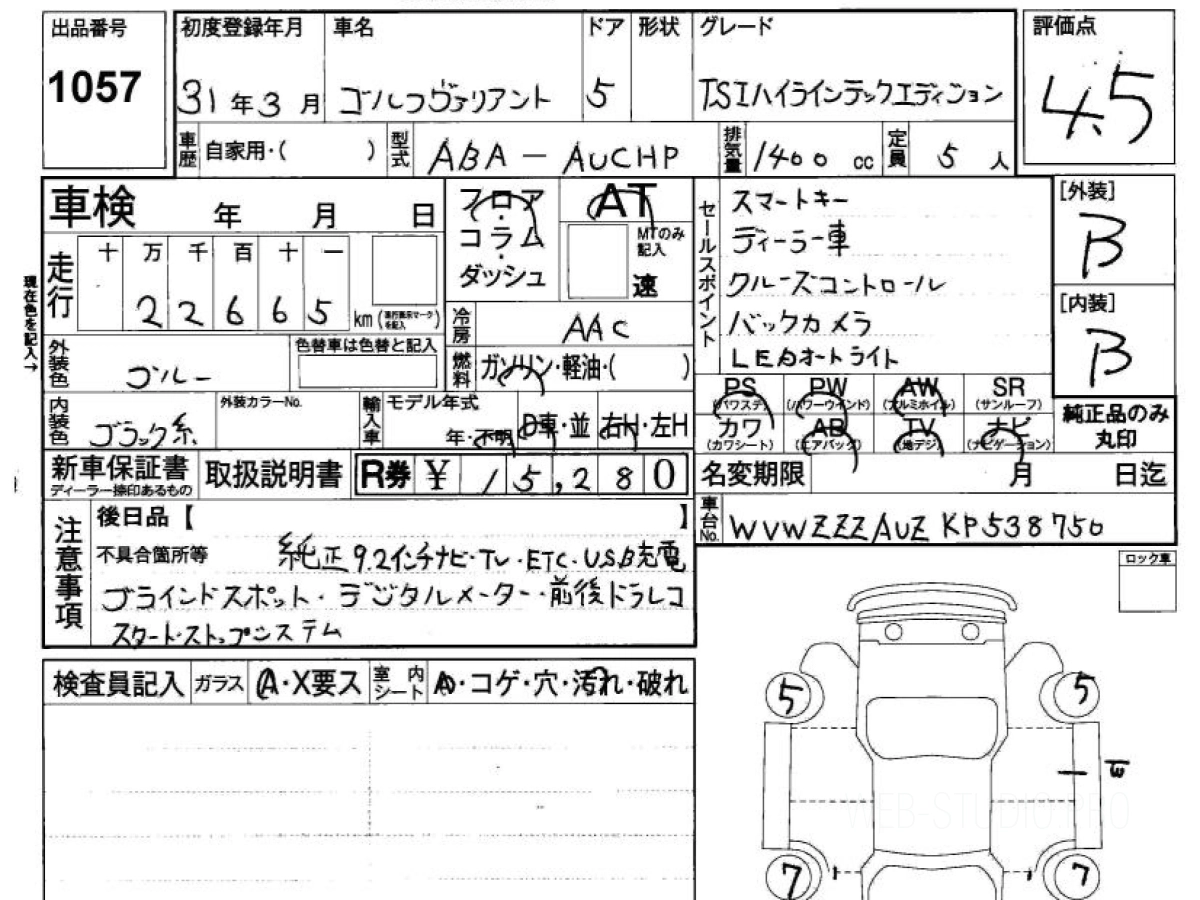 出品番号
1057
初度登録年月 車名 ドア 形状 グレード
31年3月 ゴルフヴァリアント 5 TSIハイラインテックエディション
車歴 自家用・( ) 型式 ABA-AUCHP 排気量 1400 cc 定員 5 人
評価点
4.5
車検 年 月 日
フロア・コラム・ダッシュ
AT
MTのみ記入
速
セールスポイント
スマートキー
ディーラー車
クルーズコントロール
バックカメラ
LEDオートライト
[外装]
B
[内装]
B
現在色を記入→
走行 十 万 千 百 十 一
22665 km
冷房 AAC
外装色 ブルー
色替車は色替と記入
燃料 ガソリン・軽油・( )
PS (パワステ) PW (パワーウインド) AW (アルミホイル) SR (サンルーフ)
カワ (カワシート) AB (エアバッグ) TV (地デジ) ナビ (ナビゲーション)
純正品のみ丸印
内装色 ブラック系
外装カラーNo.
輸入車 モデル年式
年・不明 D車・並 右H・左H
新車保証書
ディーラー捺印あるもの
取扱説明書
R券 ¥ 15,280
名変期限 月 日迄
車台No. WVWZZZAUZKP538750
注意事項
後日品【 】
不具合箇所等 純正9.2インチナビ・TV・ETC・USB充電
ブラインドスポット・デジタルメーター・前後ドラレコ
スタート・ストップシステム
ロック車
検査員記入 ガラス A・X要ス 室内シート A・コゲ・穴・汚れ・破れ
5 5
WEB-STUDIO.PRO
7 7